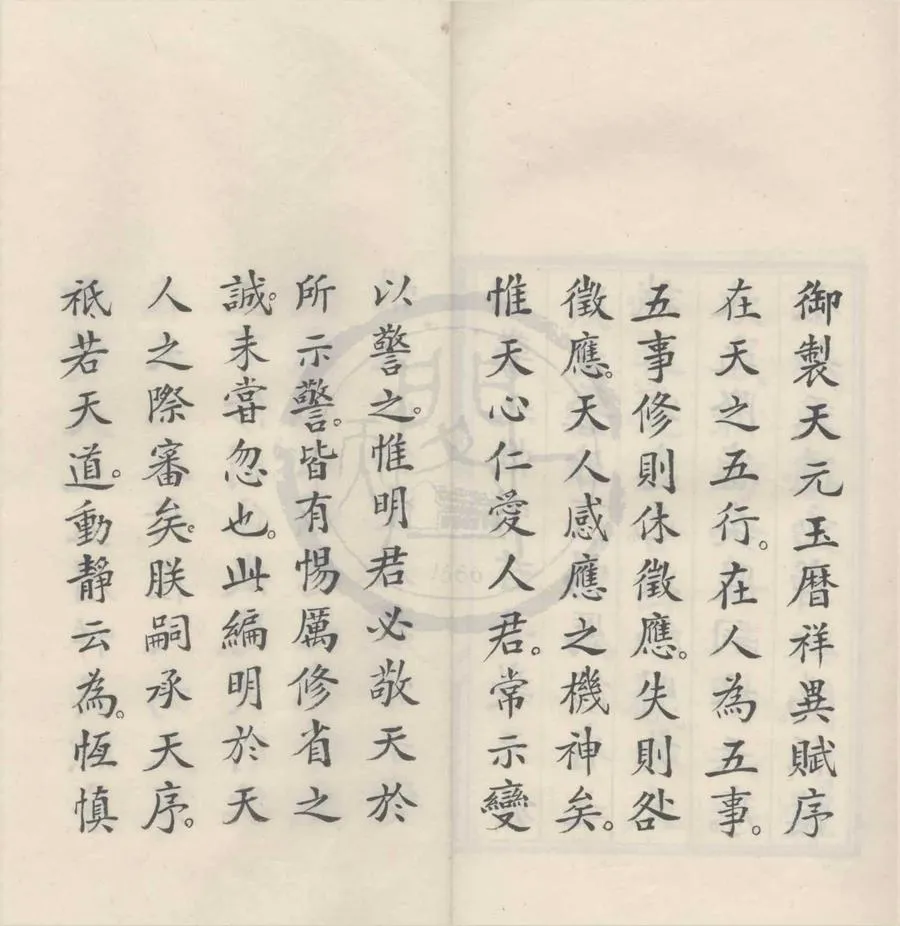 御製天元玉曆祥異賦序
在天之五行。在人為五事。
五事修則休徵應。失則咎
徵應。天人感應之機神矣。
惟天心仁愛人君。常示變
以警之。惟明君必敬天於
所示警。皆有惕厲修省之
誠。未嘗忽也。此編明於天
人之際審矣。朕嗣承天序。
祗若天道。動靜云為。恆慎
1886